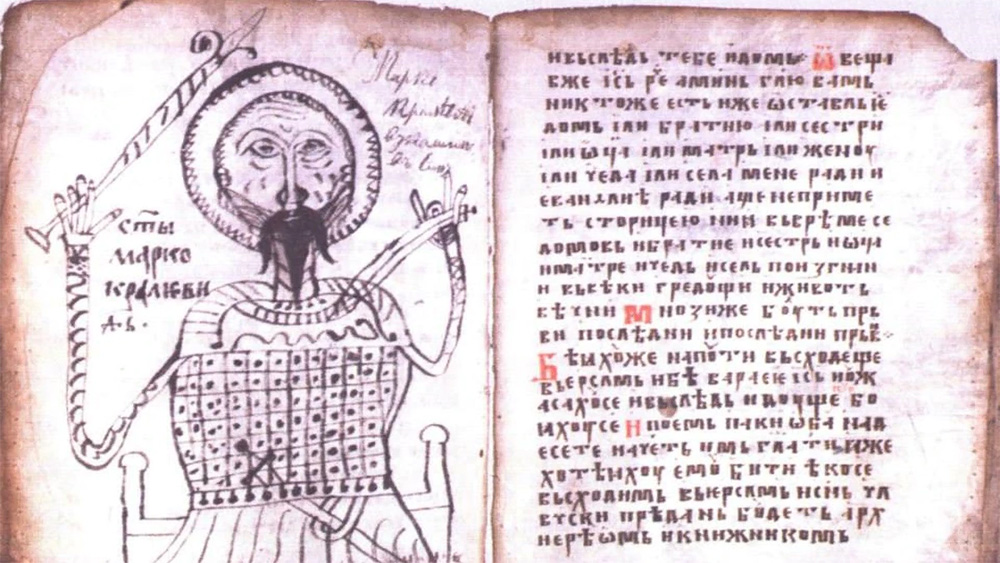 ст҃ы
марко
кралюви
ивьслѣдь тебе идомь· ѿвеща
вже іс҃ь ре҃ аминь глю вамь
никтоже есть иже ѡставлыѥ
домь іли братию іли сестри
іли ѡца іли матрь іли женоу
іли чеда іли села мене ради и
еваньлиѣ ради аще неприме
ть сторицею нин вьврѣме се
домовь ибратие исестрь иѡца
иматре ичедь исель пои згнан
и вьвѣки иживоть
вѣчни мнозиже боуть прь
ви послѣдни ипослѣдни прьв
напоути вьсходеще
вьерслмь ибѣ вараеѥ іс҃ь иоуж
асахосе ивьслѣдь идоуще бо
ꙗхоусе ипоемь паки ѡба над
есете начеть имь глати ꙗже
хотѣхоу емоу бити ѣкосе
вьсходимь вьерслмь иснь чл
вчски прѣдань боудеть арх
иерѣѡмь икнижникомь